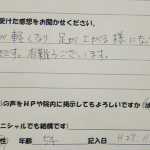 受けた感想をお聞かせください。
が軽くなり 足が上がる 様にな
です。有難うございます。
の声をHPや院内に掲示してもよろしいですか
ニシャルでも結構です）
年齢 54 記入日 H27. 11